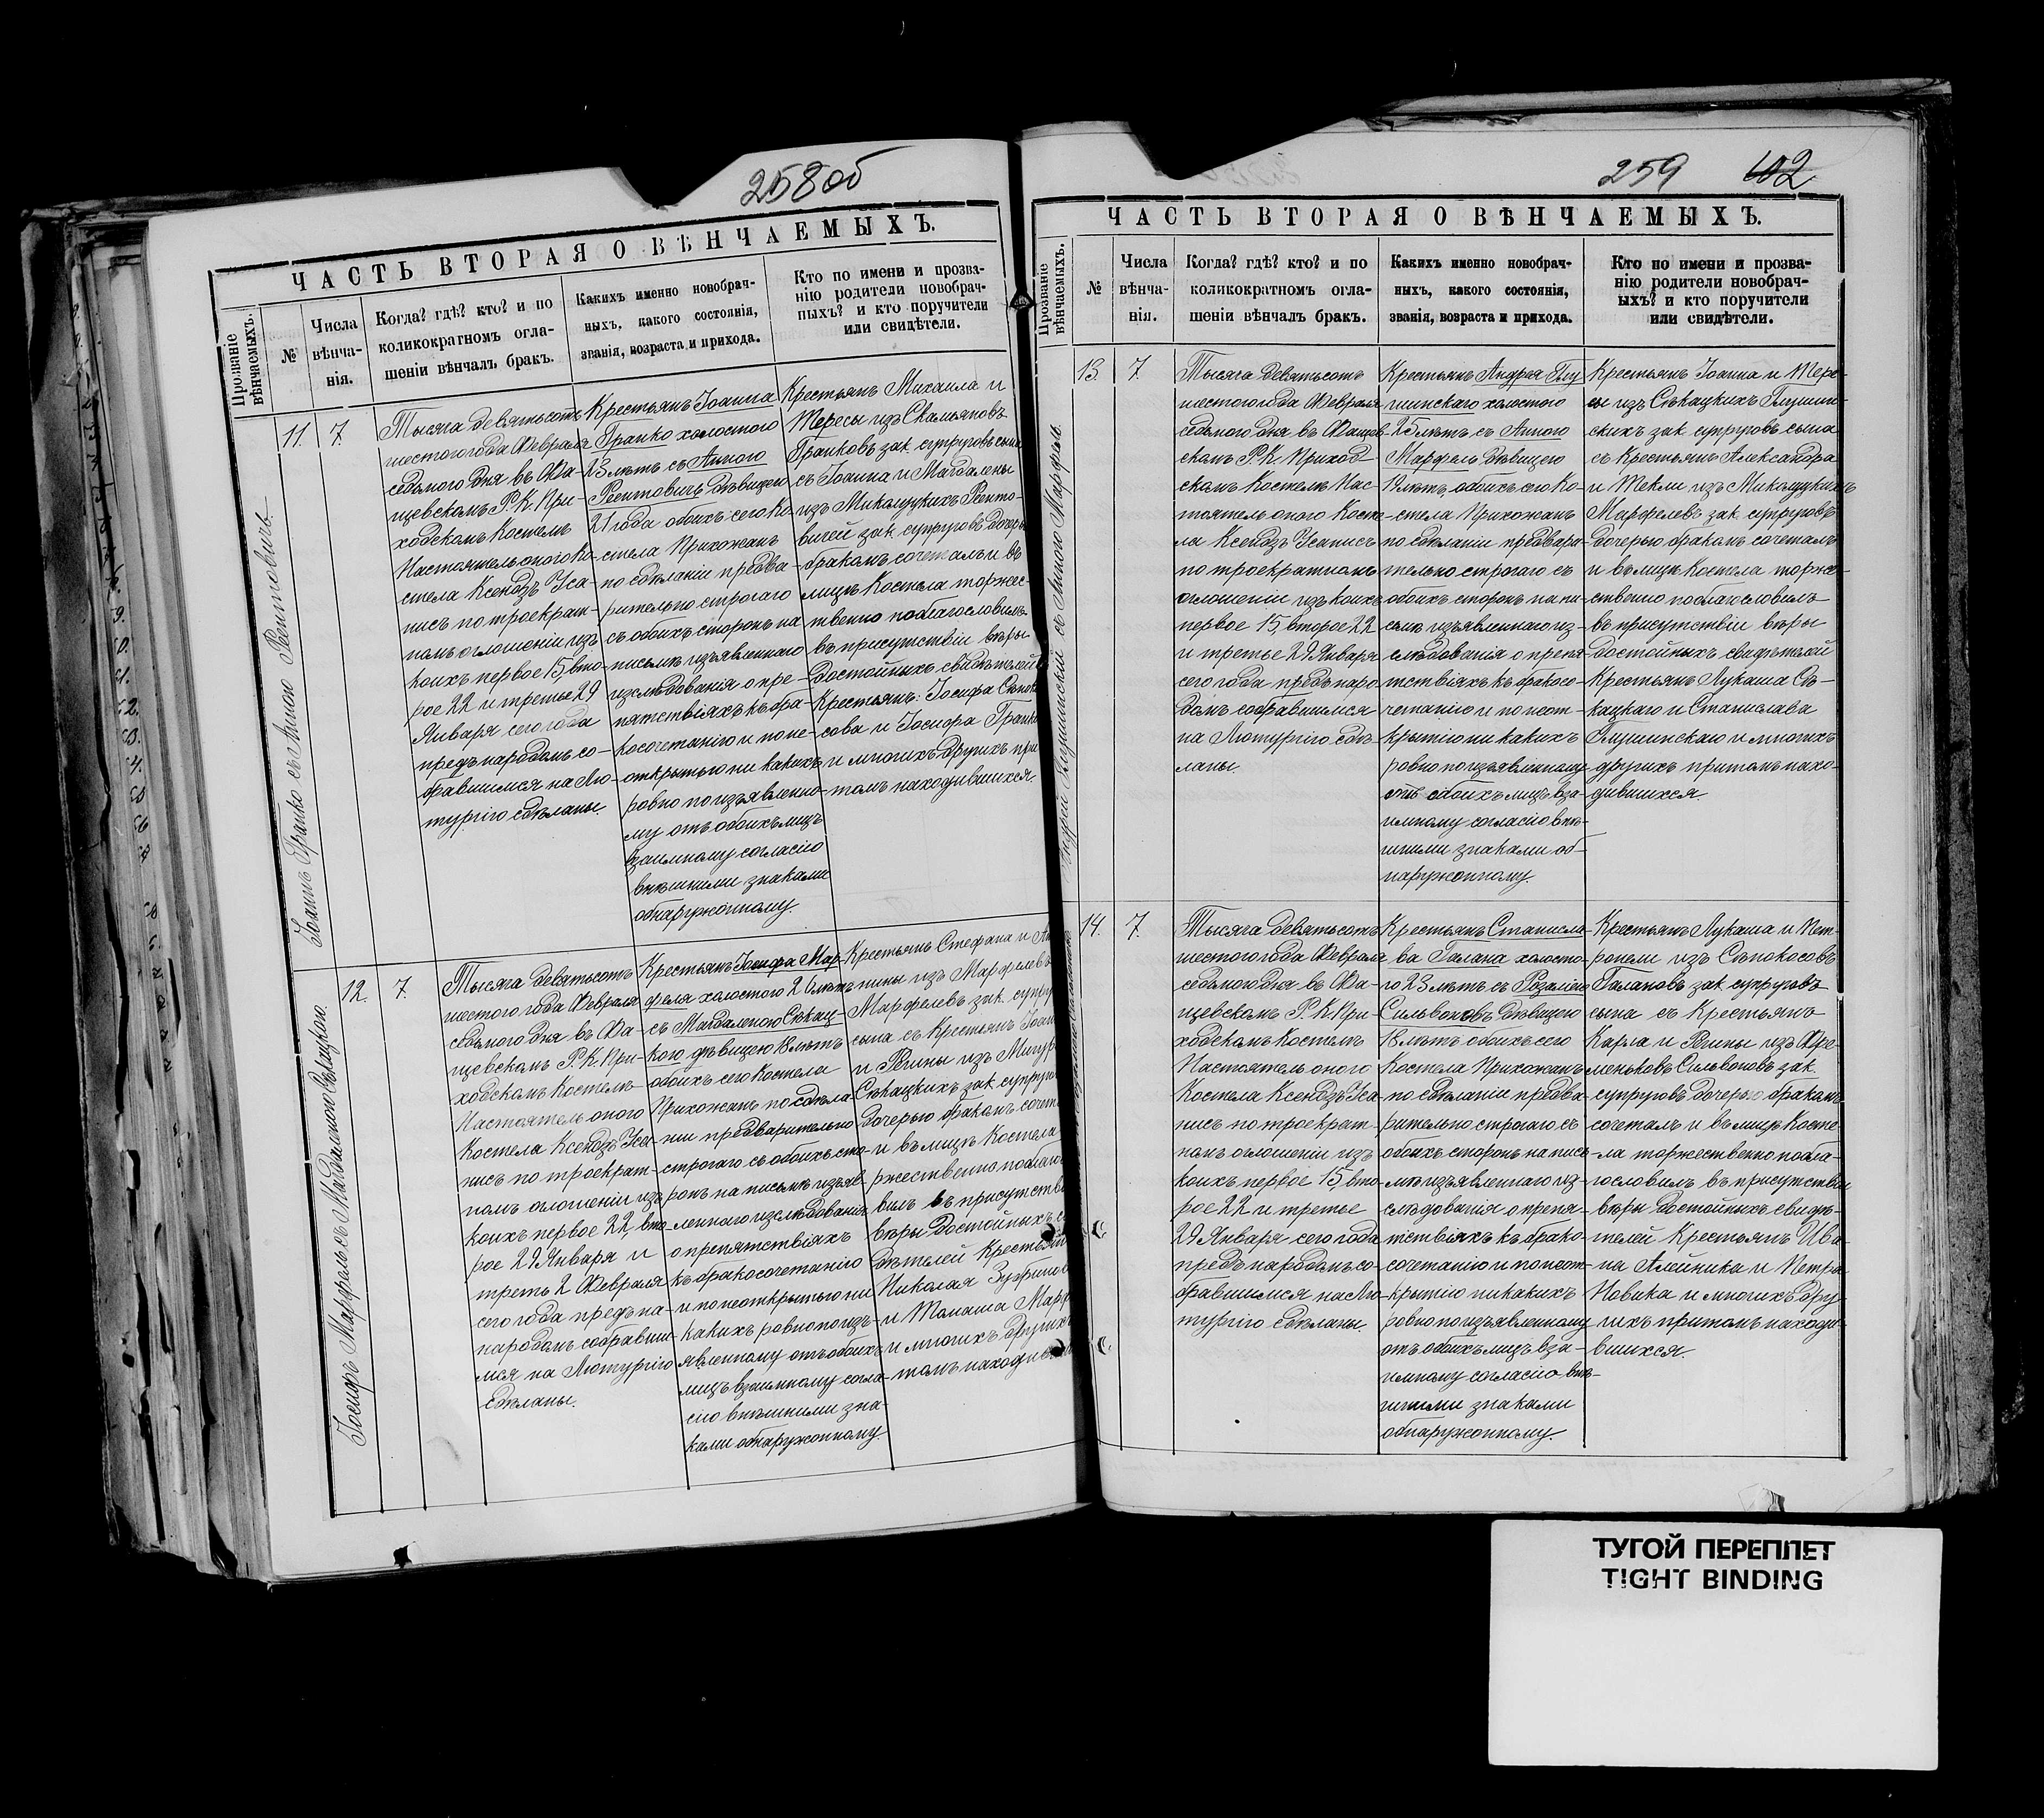 258об
ЧАСТЬ ВТОРАЯ О ВѢНЧАЕМЫХЪ.
Прозваніе вѣнчаемыхъ.
№
Числа вѣнча-
нія.
Когда? гдѣ? кто? и по
коликократномъ огла-
шеніи вѣнчалъ бракъ.
Какихъ именно новобрач-
ныхъ, какого состоянія,
званія, возраста и прихода.
Кто по имени и прозва-
нію родители новобрач-
ныхъ? и кто поручители
или свидѣтели.
Іоаннъ Гранко съ Анною Реентовичъ.
11.
7.
Тысяча девятьсотъ
шестого года Февраля
седьмого дня въ Фа-
щевскомъ Р. К. При-
ходскомъ Костелѣ
Настоятель оного Ко-
стела Ксендзъ Уса-
нисъ по троекрат-
номъ оглошеніи изъ
коихъ первое 15, вто-
рое 22 и третье 29
Января сего года
предъ народомъ со-
бравшимся на Лю-
тургію сдѣланы.
Крестьянъ Іоанна
Гранко холостого
23 лѣтъ съ Анною
Реентовичъ дѣвицею
21 года обоихъ сего Ко-
стела Прихожанъ
по сдѣланіи предва-
рительно строгаго
съ обоихъ сторонъ на
письмѣ изъявленнаго
изслѣдованія о пре-
пятствіяхъ къ бра-
косочетанію и по не-
открытію ни какихъ
ровно по изъявленно-
му отъ обоихъ лицъ
взаимному согласію
внѣшними знаками
обнаружонному.
Крестьянъ Михаила и
Тересы изъ Скамьяновъ
Гранковъ зак. супруговъ сына
съ Іоанна и Магдалены
изъ Миколуцкихъ Реенто-
вичей зак. супруговъ дочерью
бракомъ сочеталъ и въ
лицѣ Костела торжес-
твенно поблагословилъ
въ присутствіи вѣры
достойныхъ свидѣтелей
Крестьянъ: Іосифа Сѣноко-
сова и Іосифа Гранко
и многихъ другихъ при
томъ находившихся.
Іосифъ Марфель съ Магдаленою Сѣкацкою.
12.
7.
Тысяча девятьсотъ
шестого года Февраля
седьмого дня въ Фа-
щевскомъ Р. К. При-
ходскомъ Костелѣ
Настоятель оного
Костела Ксендзъ Уса-
нисъ по троекрат-
номъ оглошеніи изъ
коихъ первое 22, вто-
рое 29 Января и
треть 2 Февраля
сего года предъ на-
народомъ собравши-
мся на Лютургію
сдѣланы.
Крестьянъ Іосифа Мар-
феля холостого 26 лѣтъ
съ Магдаленою Сѣкац-
кою дѣвицею 18 лѣтъ
обоихъ сего Костела
Прихожанъ по сдѣла-
ніи предварительно
строгаго съ обоихъ сто-
ронъ на письмѣ изъяв-
леннаго изслѣдованія
о препятствіяхъ
къ бракосочетанію
и по неоткрытью ни
какихъ ровно по изъ-
явленному отъ обоихъ
лицъ взаимному согла-
сію внѣшними зна-
ками обнаружонному.
Крестьянъ Стефана и Ан
нины изъ Марфелевъ
Марфелевъ зак. супру
сына съ Крестьянъ Іоан
и Регины изъ
Сѣкацкихъ зак. супруг
дочерью бракомъ сочет
и въ лицѣ Костела
ржественно поблаго
вилъ въ присутстві
вѣры достойныхъ с
дѣтелей Крестьян
Николая
и Томаша Марф
и многихъ другихъ
томъ находивш
259 102
ЧАСТЬ ВТОРАЯ О ВѢНЧАЕМЫХЪ.
Прозваніе вѣнчаемыхъ.
№
Числа вѣнча-
нія.
Когда? гдѣ? кто? и по
коликократномъ огла-
шеніи вѣнчалъ бракъ.
Какихъ именно новобрач-
ныхъ, какого состоянія,
званія, возраста и прихода.
Кто по имени и прозва-
нію родители новобрач-
ыхъ? и кто поручители
или свидѣтели.
Андрей Глушинскій съ Анною Марфель.
13.
7.
Тысяча девятьсотъ
шестого года Февраля
седьмого дня въ Фащев-
скомъ Р. К. Приход-
скомъ Костелѣ Нас-
тоятель оного Косте-
ла Ксендзъ Усанисъ
по троекратномъ
оглошеніи изъ коихъ
первое 15, второе 22
и третье 29 Января
сего года предъ наро-
домъ собравшимся
на Лютургію сдѣ-
ланы.
Крестьянъ Андрея Глу
шинскаго холостого
25 лѣтъ съ Анною
Марфель дѣвицею
19 лѣтъ, обоихъ сего Ко-
стела Прихожанъ
по сдѣланіи предвари-
тельно строгаго съ
обоихъ сторонъ на пи-
сьмѣ изъявленнаго из-
слѣдованія о препя-
тствіяхъ къ бракосо-
четанію и по неот-
крытію ни какихъ
ровно по изъявленному
отъ обоихъ лицъ вза-
имному согласію внѣ-
шними знаками об-
наружонному.
Крестьянъ Іоанна и Тере-
сы изъ Сѣкацкихъ Глушин-
скихъ зак. супруговъ сына
съ Крестьянъ Александра
и Текли изъ Миколуцкихъ
Марфелевъ зак. супруговъ
дочерью бракомъ сочеталъ
и въ лицѣ Костела торже-
ственно поблагословилъ
въ присутствіи вѣры
достойныхъ свидѣтелей
Крестьянъ Лукаша Сѣ-
кацкаго и Станислава
Глушинскаго и многихъ
другихъ притомъ нахо-
дившихся.
14.
7.
Тысяча девятьсотъ
шестого года Февраля
седьмого дня въ Фа-
щевскомъ Р. К. При-
ходскомъ Костелѣ
Настоятель оного
Костела Ксендзъ Уса-
нисъ по троекрат-
номъ оглошеніи изъ
коихъ первое 15 вто-
рое 22 и третье
29 Января сего года
предъ народомъ со-
бравшимся на Лю-
тургію сдѣланы.
Крестьянъ Станисла-
ва Галана холосто-
го 23 лѣтъ съ Розаліею
Сильвоновъ дѣвицею
18 лѣтъ обоихъ сего
Костела Прихожанъ
по сдѣланіи предва-
рительно строгаго съ
обоихъ сторонъ на пись-
мѣ изъявленнаго из-
слѣдованія о препя-
тствіяхъ къ брако-
сочетанію и по неот-
крытію никакихъ
ровно по изъявленному
отъ обоихъ лицъ вза-
имному согласію внѣ-
шними знаками
обнаружонному.
Крестьянъ Лукаша и Пет-
ронели изъ Сѣнокосовъ
Галановъ зак. супруговъ
сына съ Крестьянъ
Карла и Регины изъ Фре-
меньковъ Сильвоновъ зак.
супруговъ дочерью бракомъ
сочеталъ и въ лицѣ Косте-
ла торжественно побла-
гословилъ въ присутствіи
вѣры достойныхъ свидѣ-
телей Крестьянъ Ива-
на Алейника и Петра
Новика и многихъ дру-
гихъ притомъ находи-
вшихся.
ТУГОЙ ПЕРЕПЛЕТ
TIGHT BINDING